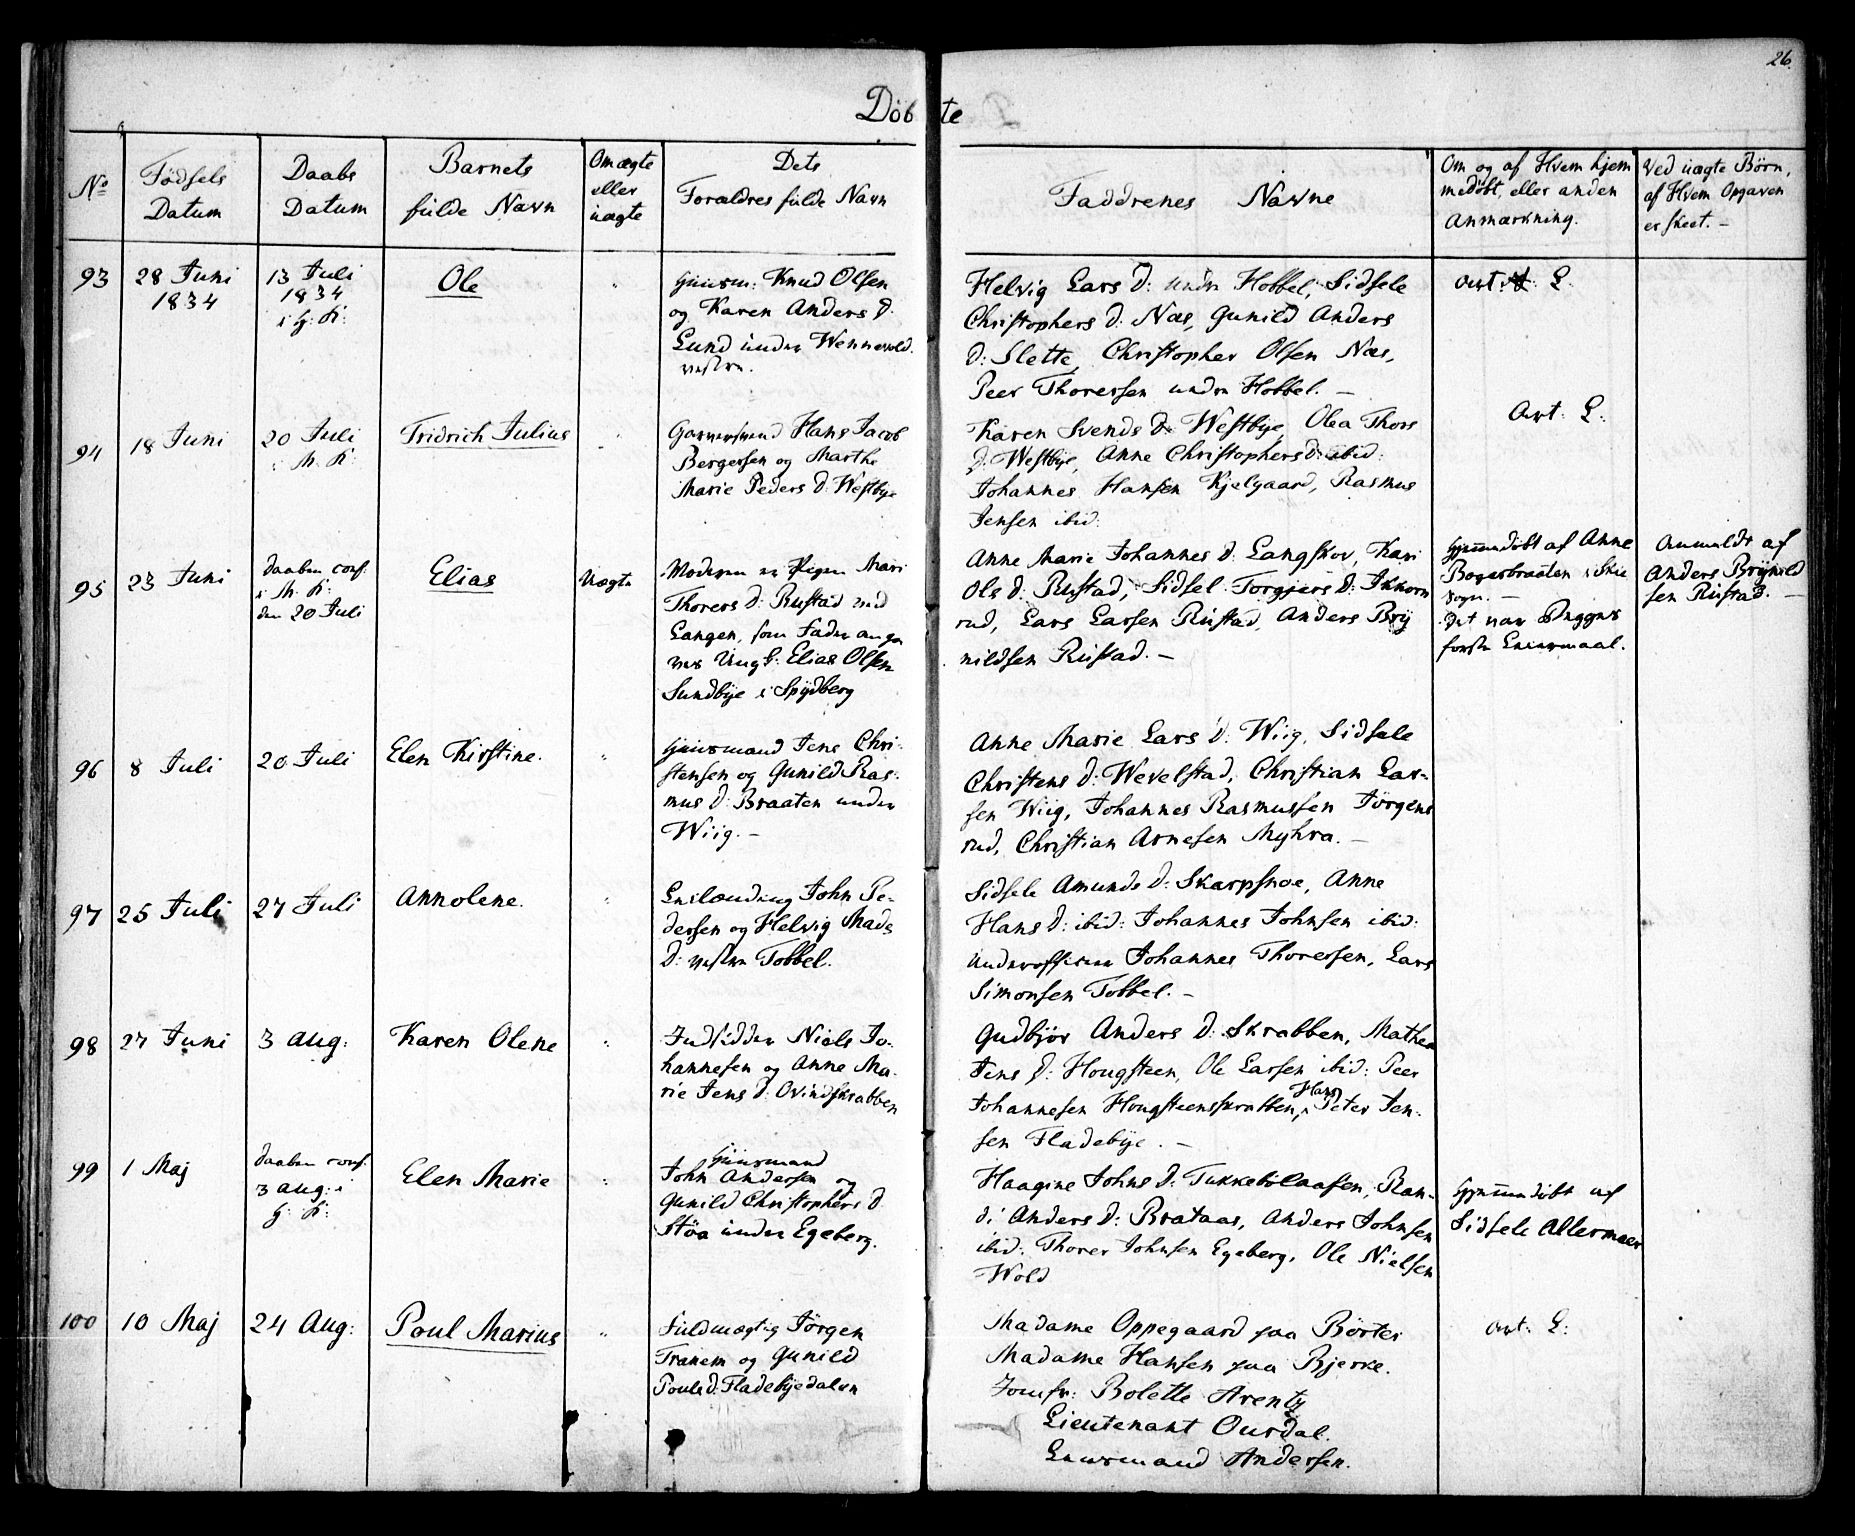 26.
Döbte
No
Födsels
Datum
Daabs
Datum
Barnets
fulde Navn
Om ægte
eller
uægte
Dets
Forældres fulde Navn
Faddrenes Navne
Om og af Hvem hjem
medöbt, eller anden
Anmærkning.
Ved uægte Børn,
af Hvem Opgaven
er skeet. –
93
28 Juni
1834
13 Juli
1834
i H: K:
Ole
"
Huusm: Knud Olsen
og Karen Anders D.
Lund under Wennevold.
vestre.
Helvig Lars D: under Hobbel, Sidsele
Christophers D. Næs, Gunild Anders
D: Slette, Christopher Olsen Næs,
Peer Thoressen under Hobbel. –
Att: L.
94
18 Juni
20 Juli
i M. K:
Fridrich Julius
"
Garversvend Hans Jacob
Bergersen og Marthe
Marie Peders D: Westbye
Karen Svends D: Westbye, Olea Thors
D: Westbye, Anne Christophers D: ibid:
Johannes Hansen Kjelgaard, Rasmus
Jensen ibid:
Att: L:
95
23 Juni
daaben conf:
i M. K:
den 20 Juli
Elias
Uægte
Moderen er Pigen Mari
Thorers D: Rustad ved
Langen, som Fader anga
ves Ungk: Elias Olsen
Sundbye i Spydberg
Anne Marie Johannes D: Langskov, Kari
Ols D: Rustad, Sidsel Torgjers D: Ikkorn
rud, Lars Larsen Rustad, Anders Bry
nildsen Rustad. –
Hjemmedöbt af Anne
Bogerbraaten i Skie
Sogn. –
Det var Begges
første Leiermaal.
Anmeldt af
Anders Brynild
sen Rustad. –
96
8 Juli
20 Juli
Elen Kirstine.
"
Huusmand Jens Chri-
stensen og Gunild Ras-
mus D: Braaten under
Wiig. –
Anne Marie Lars D: Wiig, Sidsele
Christens D: Wevelstad, Christian Lar-
sen Wiig, Johannes Rasmussen Jörgens
rud, Christian Arnesen Myhra. –
97
25 Juli
27 Juli
Annolene.
"
Leilænding John Pe-
dersen og Helvig Mads
D: vestre Tobbel.
Sidsele Amunds D: Skarpsnoe, Anne
Hans D: ibid: Johannes Johnsen ibid:
Underofficeer Johannes Thoresen, Lars
Simonsen Tobbel. –
98
27 Juni
3 Aug:
Karen Olene
"
Indsidder Niels Jo-
hannesen og Anne Ma-
rie Jens D: Ovindskrabben
Gudbjör Anders D: Skrabben, Mathea
Jens D: Hougsteen, Ole Larsen ibid: Peer
Johannesen Hougsteenskrabben, Hans Peter Jen-
sen Fladebye. –
99
1 Maj
daaben conf:
3 Aug: i
H: K:
Elen Marie
"
Huusmand
John Andersen og
Gunild Christophers D
Stöa under Egeberg.
Haagine Johns D: Tukkebölaasen, Ran-
di Anders D: Brataas, Anders Johnsen
ibid: Thorer Johnsen Egeberg, Ole Nielsen
Wold
Hjemmedöbt af
Sidsele Allermoer
100
10 Maj
24 Aug:
Poul Marius
"
Fuldmægtig Jörgen
Tranem og Gunild
Pouls D: Fladebyedalen
Madame Oppegaard paa Börter
Madame Hansen paa Bjerke.
Jomfr: Bolette Arentz
Lieutenant Ousdal.
Lensmand Andersen.
Att: L: